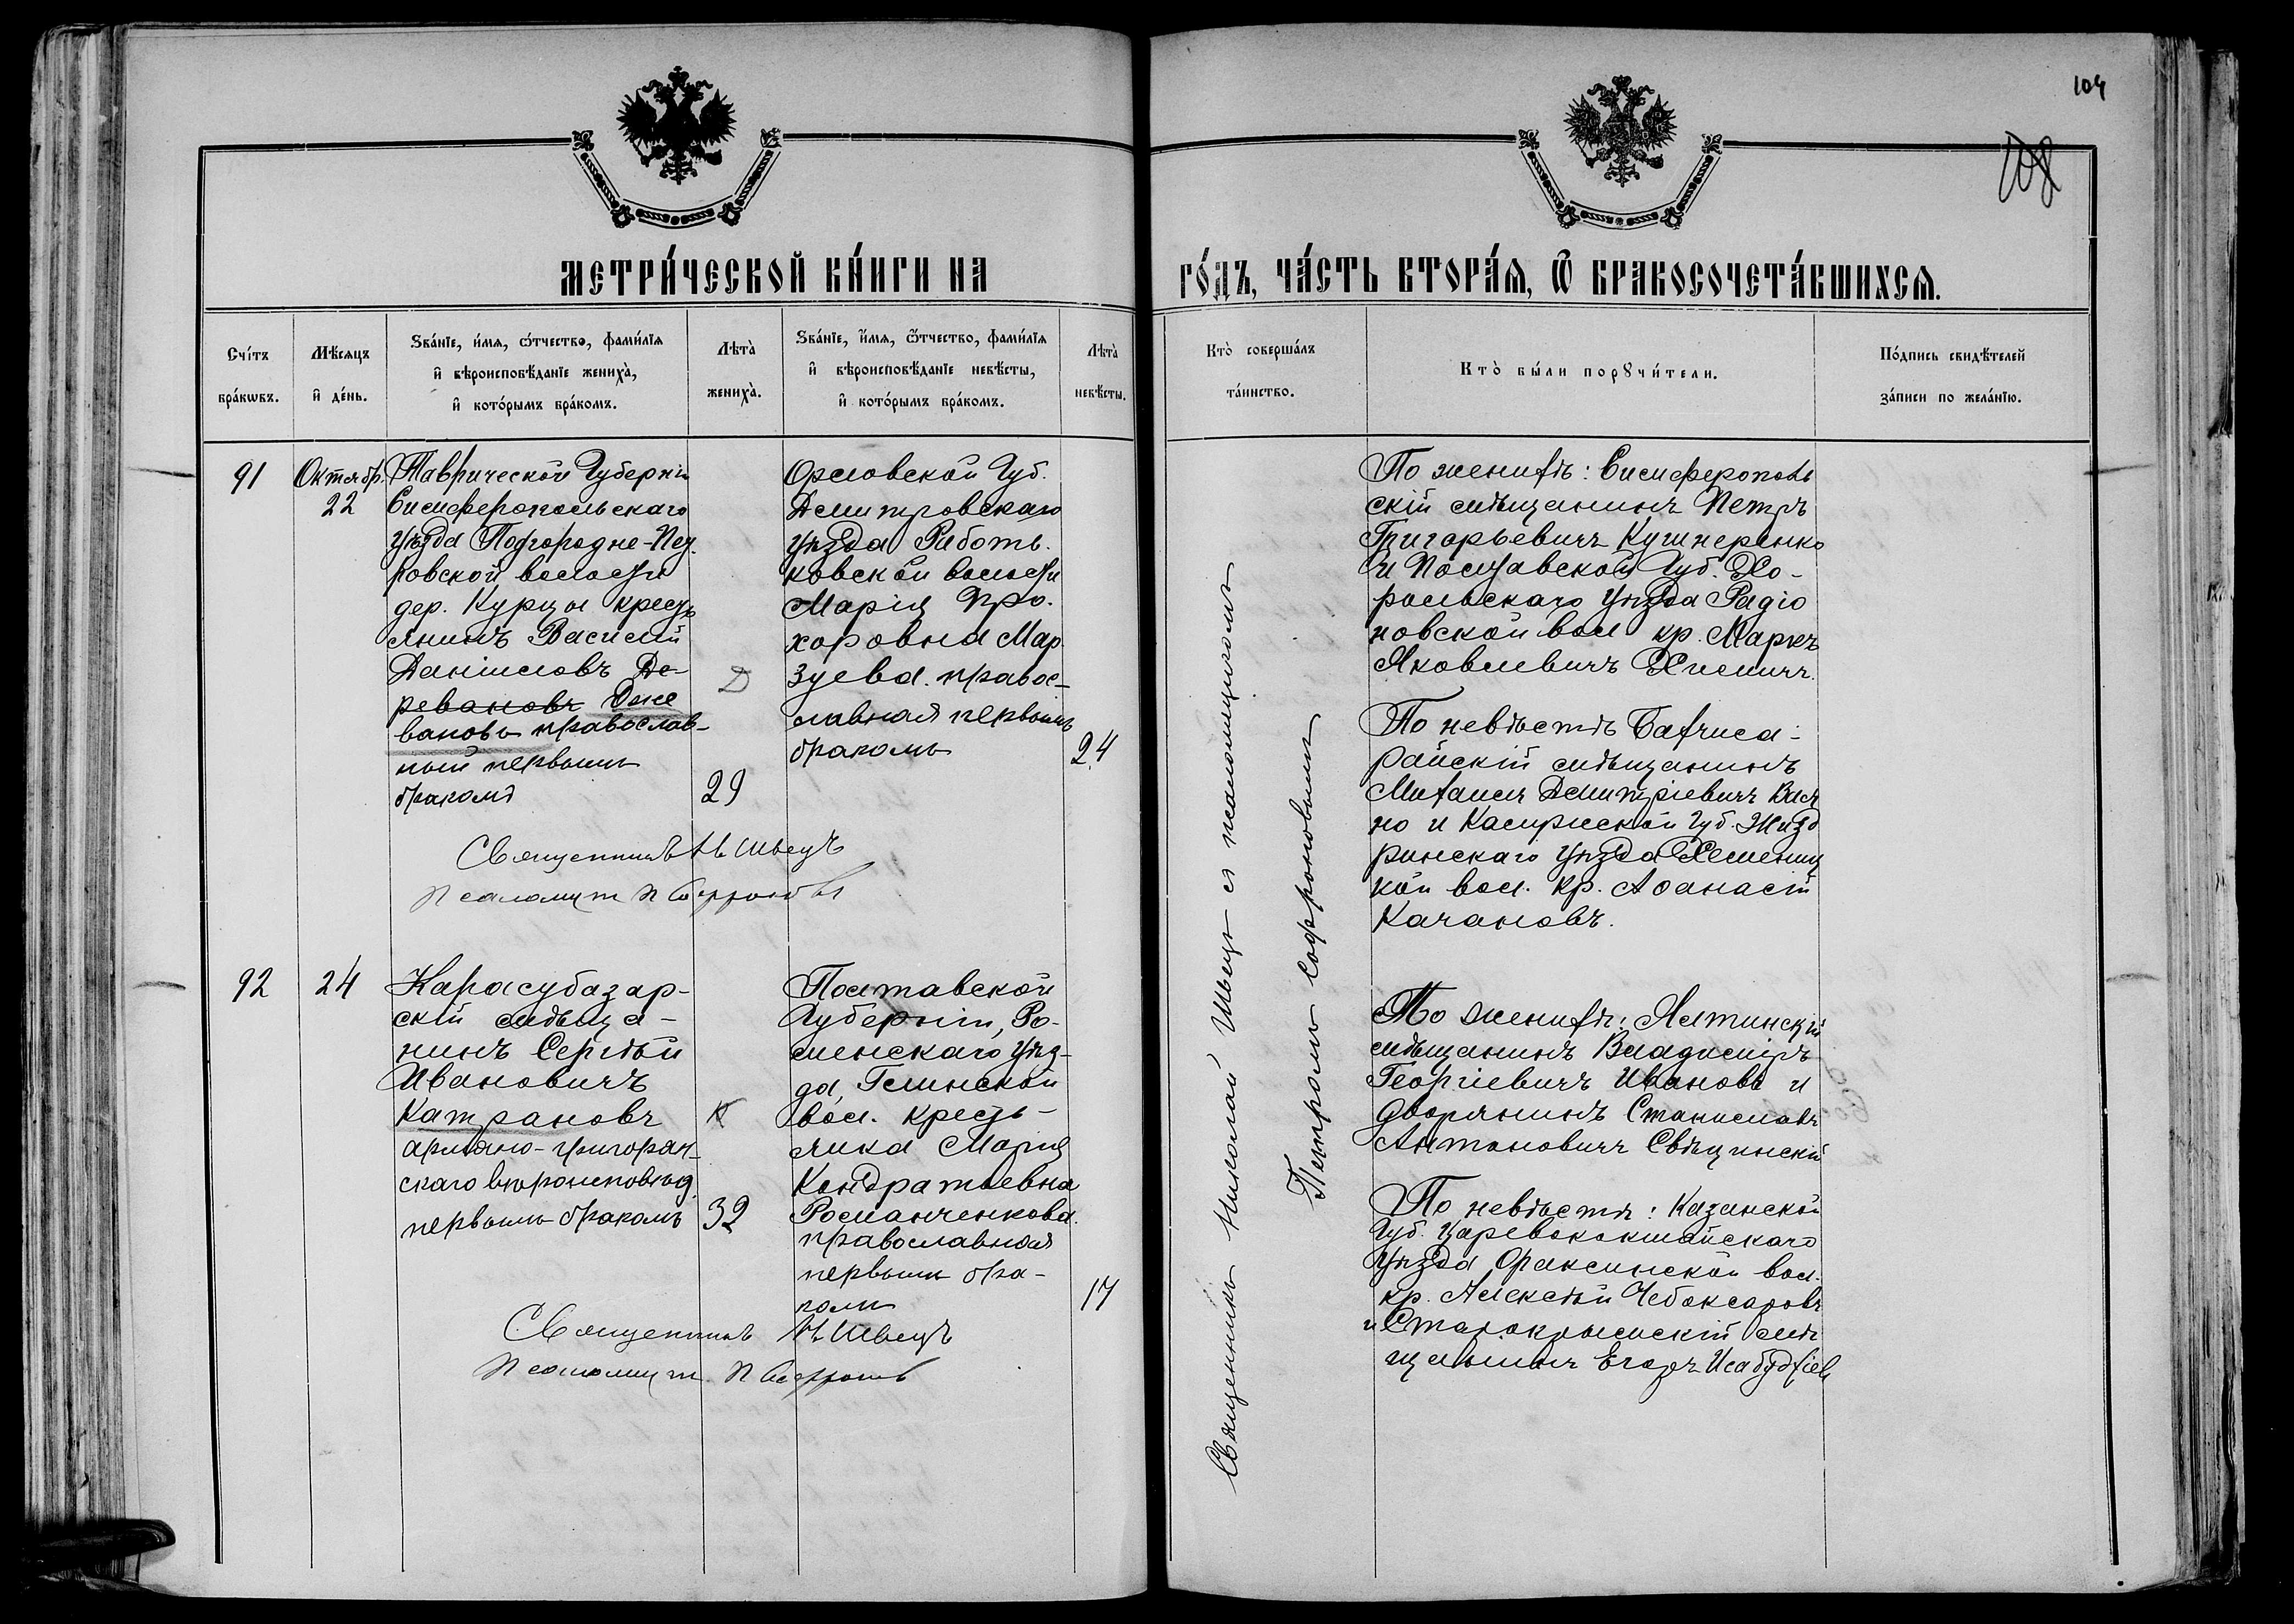 104
108
МЕТРИ́ЧЕСКОЙ КНИ́ГИ НА
ГО́ДЪ, ЧА́СТЬ ВТОРА́Я, Ѿ БРАКОСОЧЕТА́ВШИХСЯ.
Сче́тъ бра́кѡвъ.
Мѣ́сяцъ и҆ де́нь.
Ѕва́нїе, и҆́мя, ѻ҆́тчество, фами́лїя
и҆ вѣроисповѣ́данїе жениха̀,
и҆ кото́рымъ бра́комъ.
Лѣта̀ жениха̀.
Ѕва́нїе, и҆́мя, ѻ҆́тчество, фами́лїя
и҆ вѣроисповѣ́данїе невѣ́сты,
и҆ кото́рымъ бра́комъ.
Лѣта̀ невѣ́сты.
Кто̀ соверша́лъ
та́инство.
Кто̀ бы́ли порꙋчи́тели.
По́дпись свидѣ́телей
за́писи по жела́нїю.
91
Октябр.
22
Таврической Губерніи
Симферопольскаго
уѣзда Подгородне-Пет
ровской волости
дер. Курцы крестъ
янинъ Василій
Даніиловъ Де-
ревановъ Дже
вановъ православ-
ный первымъ
бракомъ
Д
29
Орловской Губ.
Дмитровскаго
уѣзда Работь.
ковской волости
Марія Про.
хоровна Мар
зуева. правос-
лавная первымъ
бракомъ
24
Священникъ Н Швецъ
Псаломщ П Софроновъ
По женихѣ: Симферополь
скій мѣщанинъ Петръ
Григорьевичъ Кушнеренко
и Полтавской Губ. Хо-
рольскаго уѣзда Радіо
новской вол кр. Маркъ
Яковлевичъ
По невѣстѣ Бахчиса-
райскій мѣщанинъ
Михаилъ Дмитріевичъ
но и Калужской Губ. Жизд
ринскаго уѣзда
кой вол. кр. Аѳанасій
Качановъ.
92
24
Карасубазар-
скій мѣща-
нинъ Сергѣй
Ивановичъ
Катрановъ
армяно-григоріан-
скаго вѣроисповѣд.
первымъ бракомъ
К
32
Полтавской
Губерніи, Ро-
менскаго уѣз-
да, Глинской
вол. кресть-
янка Марія
Кондратьевна
Романченкова.
православная
первымъ бра-
комъ
17
Священникъ Н Швецъ
Псаломщ. П Софроновъ
По женихѣ: Ялтинскій
мѣщанинъ Владиміръ
Георгіевичъ Ивановъ и
дворянинъ Станиславъ
Антоновичъ Свѣщинскій
По невѣстѣ: Казанской
Губ. Царевококшайскаго
уѣзда вол.
кр. Алексѣй Чебоксаровъ
и Старокрымскій мѣ
щанинъ Егоръ
Священникъ Николай Швецъ съ псаломщикомъ
Петромъ Софроновымъ